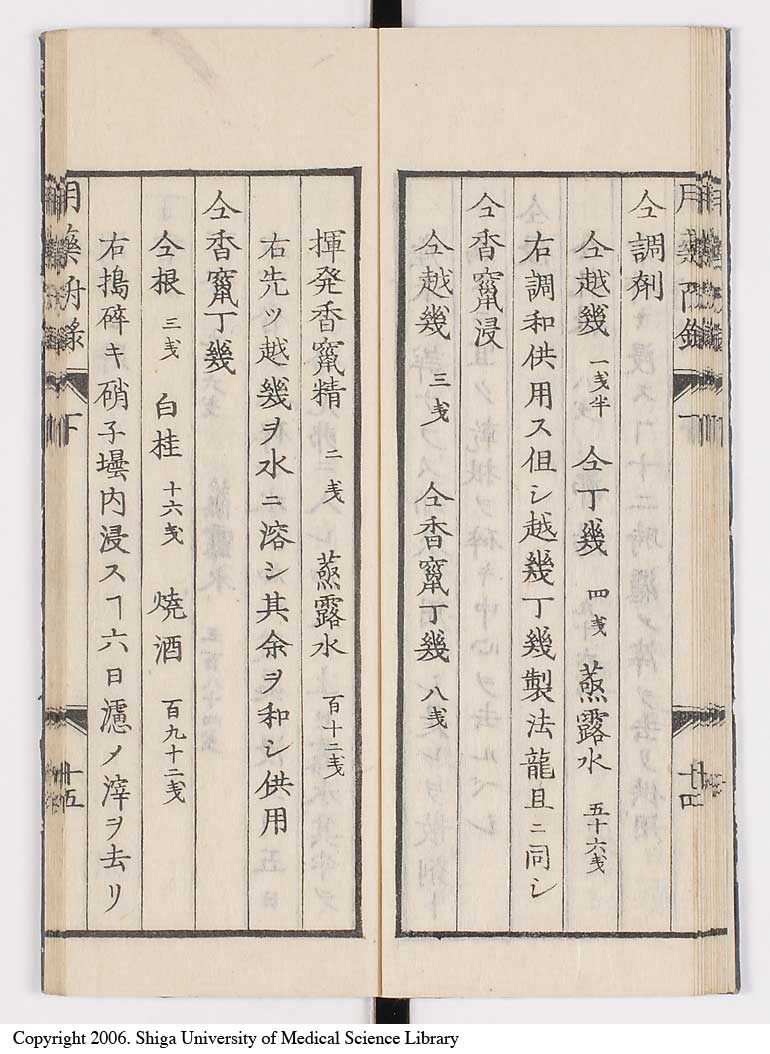 仝調剤
仝越幾 一戔半 仝丁幾 四戔 蒸露水 五十六戔
右調和供用ス但シ越幾丁幾製法龍且ニ同シ
仝香竄浸
仝越幾 三戔 仝香竄丁幾 八戔
揮発香竄精 二戔 蒸露水 百十二戔
右先ツ越幾ヲ水ニ溶シ其余ヲ和シ供用
仝香竄丁幾
仝根 三戔 白桂 十六戔 焼酒 百九十二戔
右搗碎キ硝子壜内浸スヿ六日濾メ滓ヲ去リ
Copyright 2006. Shiga University of Medical Science Library